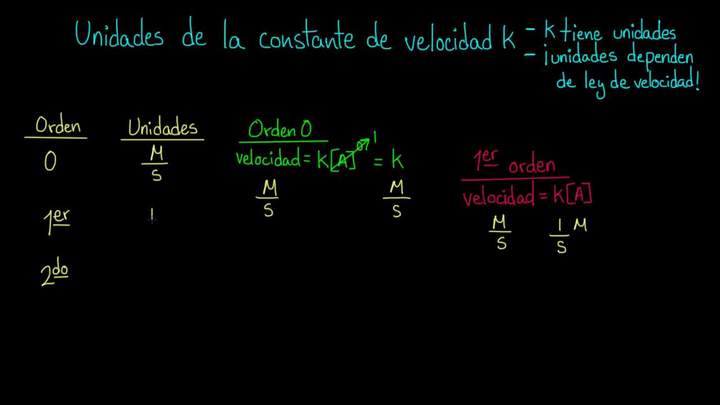 Unidades de la constante de velocidad k
- k tiene unidades
- ¡unidades dependen
de ley de velocidad!
Orden Unidades
0 M/S
1er 1
2do
Orden 0
velocidad = k[A]⁰ 1 = k
M/S M/S
1er orden
velocidad = k[A]
M/S 1/S M